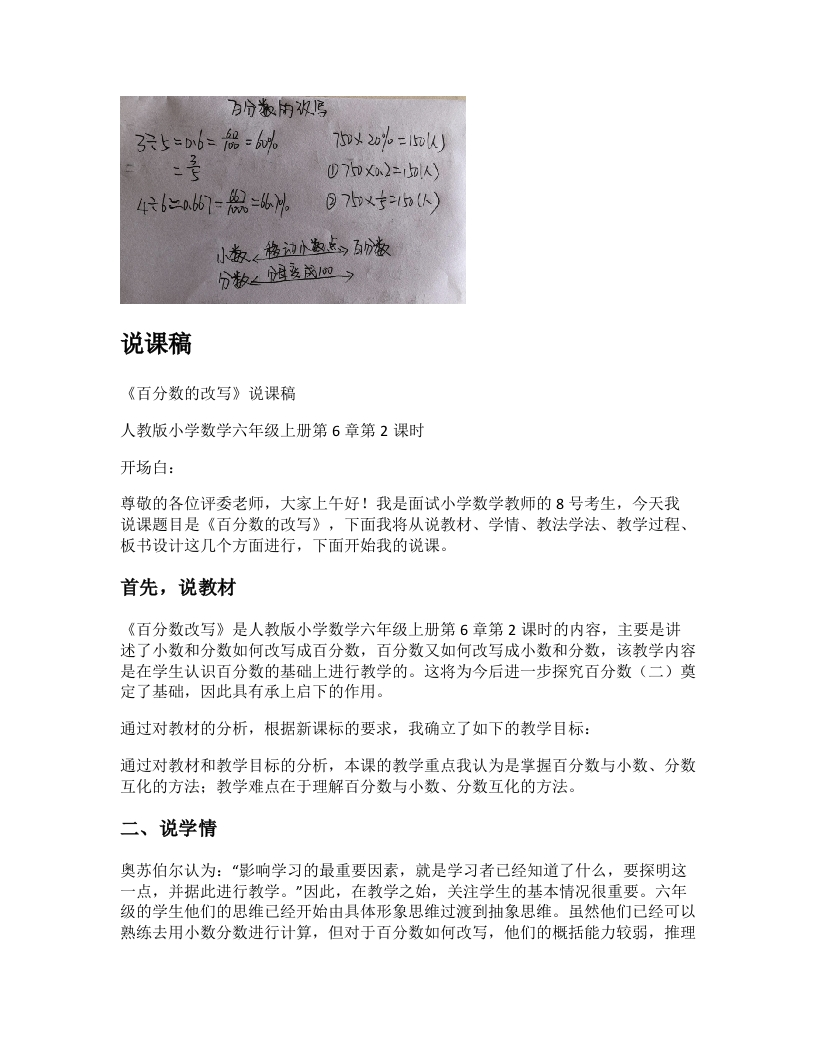 百分数的改写
3÷5=0.6=60/100=60%
=3/5
4÷6≈0.667=667/1000=66.7%
750×20%=150(人)
①750×0.2=150(人)
②750×1/5=150(人)
小数 移动小数点 百分数
分数 分母变成100
说课稿
《百分数的改写》说课稿
人教版小学数学六年级上册第 6 章第 2 课时
开场白：
尊敬的各位评委老师，大家上午好！我是面试小学数学教师的 8 号考生，今天我
说课题目是《百分数的改写》，下面我将从说教材、学情、教法学法、教学过程、
板书设计这几个方面进行，下面开始我的说课。
首先，说教材
《百分数改写》是人教版小学数学六年级上册第 6 章第 2 课时的内容，主要是讲
述了小数和分数如何改写成百分数，百分数又如何改写成小数和分数，该教学内容
是在学生认识百分数的基础上进行教学的。这将为今后进一步探究百分数（二）奠
定了基础，因此具有承上启下的作用。
通过对教材的分析，根据新课标的要求，我确立了如下的教学目标：
通过对教材和教学目标的分析，本课的教学重点我认为是掌握百分数与小数、分数
互化的方法；教学难点在于理解百分数与小数、分数互化的方法。
二、说学情
奥苏伯尔认为：“影响学习的最重要因素，就是学习者已经知道了什么，要探明这
一点，并据此进行教学。”因此，在教学之始，关注学生的基本情况很重要。六年
级的学生他们的思维已经开始由具体形象思维过渡到抽象思维。虽然他们已经可以
熟练去用小数分数进行计算，但对于百分数如何改写，他们的概括能力较弱，推理